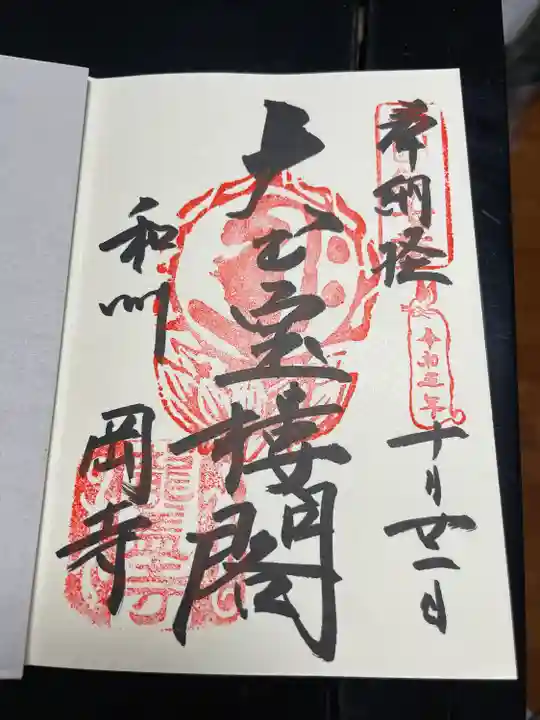 奉納経
令和五年
十月廿一日
大悲宝楼閣
和州
岡寺